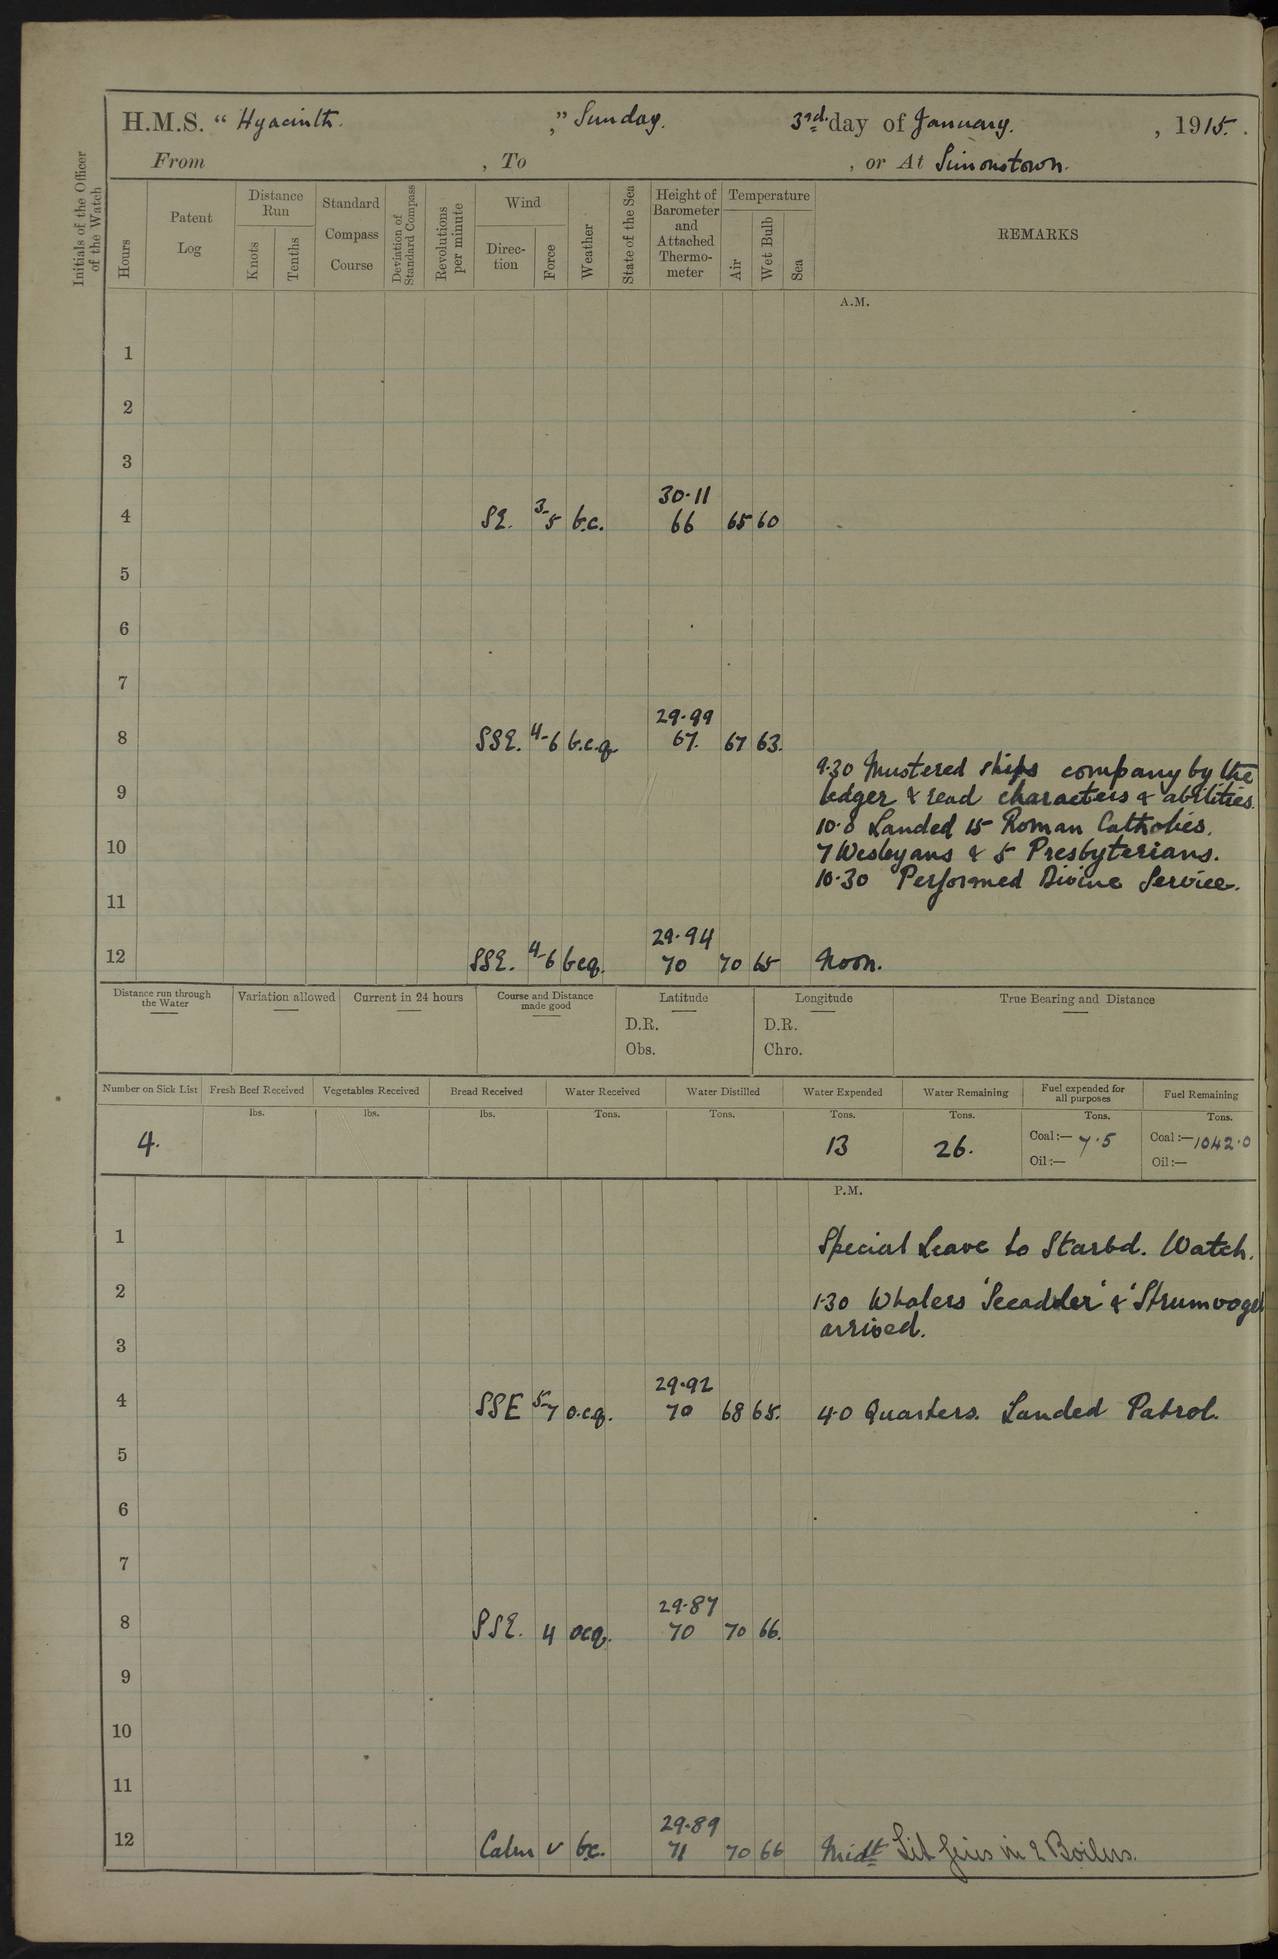 H.M.S. “ Hyacinth. ,” Sunday. 3rd. day of January. , 1915. .
From , To , or At Simonstown.
Initials of the Officer of the Watch
Hours
Patent Log
Distance Run
Knots
Tenths
Standard Compass Course
Deviation of Standard Compass
Revolutions per minute
Wind
Direc-tion
Force
Weather
State of the Sea
Height of Barometer and Attached Thermo-meter
Temperature
Air
Wet Bulb
Sea
REMARKS
A.M.
1
2
3
30.11
4 SE. 3-5 b.c. 66 65 60
5
6
7
29.99
8 SSE. 4-6 b.c.q. 67. 67 63.
9.30 Mustered ships company by the
9 ledger & read characters & abilities.
10.0 Landed 15 Roman Catholics.
10 7 Wesleyans & 5 Presbyterians.
10.30 Performed Divine Service.
11
29.94
12 SSE. 4-6 bcq. 70 70 65 Noon.
Distance run through the Water
Variation allowed
Current in 24 hours
Course and Distance made good
Latitude
D.R.
Obs.
Longitude
D.R.
Chro.
True Bearing and Distance
Number on Sick List Fresh Beef Received Vegetables Received Bread Received Water Received Water Distilled Water Expended Water Remaining Fuel expended for all purposes Fuel Remaining
lbs. lbs. lbs. Tons. Tons. Tons. Tons. Tons. Tons.
4. 13 26. Coal:— 7.5 Coal:— 1042.0
Oil:— Oil:—
P.M.
1 Special Leave to Starbd. Watch.
2 1.30 Whalers 'Seeadler' & 'Strumvogel
3 arrived.
29.92
4 SSE 5-7 o.c.q. 70 68 65. 4.0 Quarters. Landed Patrol.
5
6
7
29.87
8 SSE. 4 ocq. 70 70 66.
9
10
11
29.89
12 Calm v b.c. 71 70 66 Midt Lit fires in 2 Boilers.